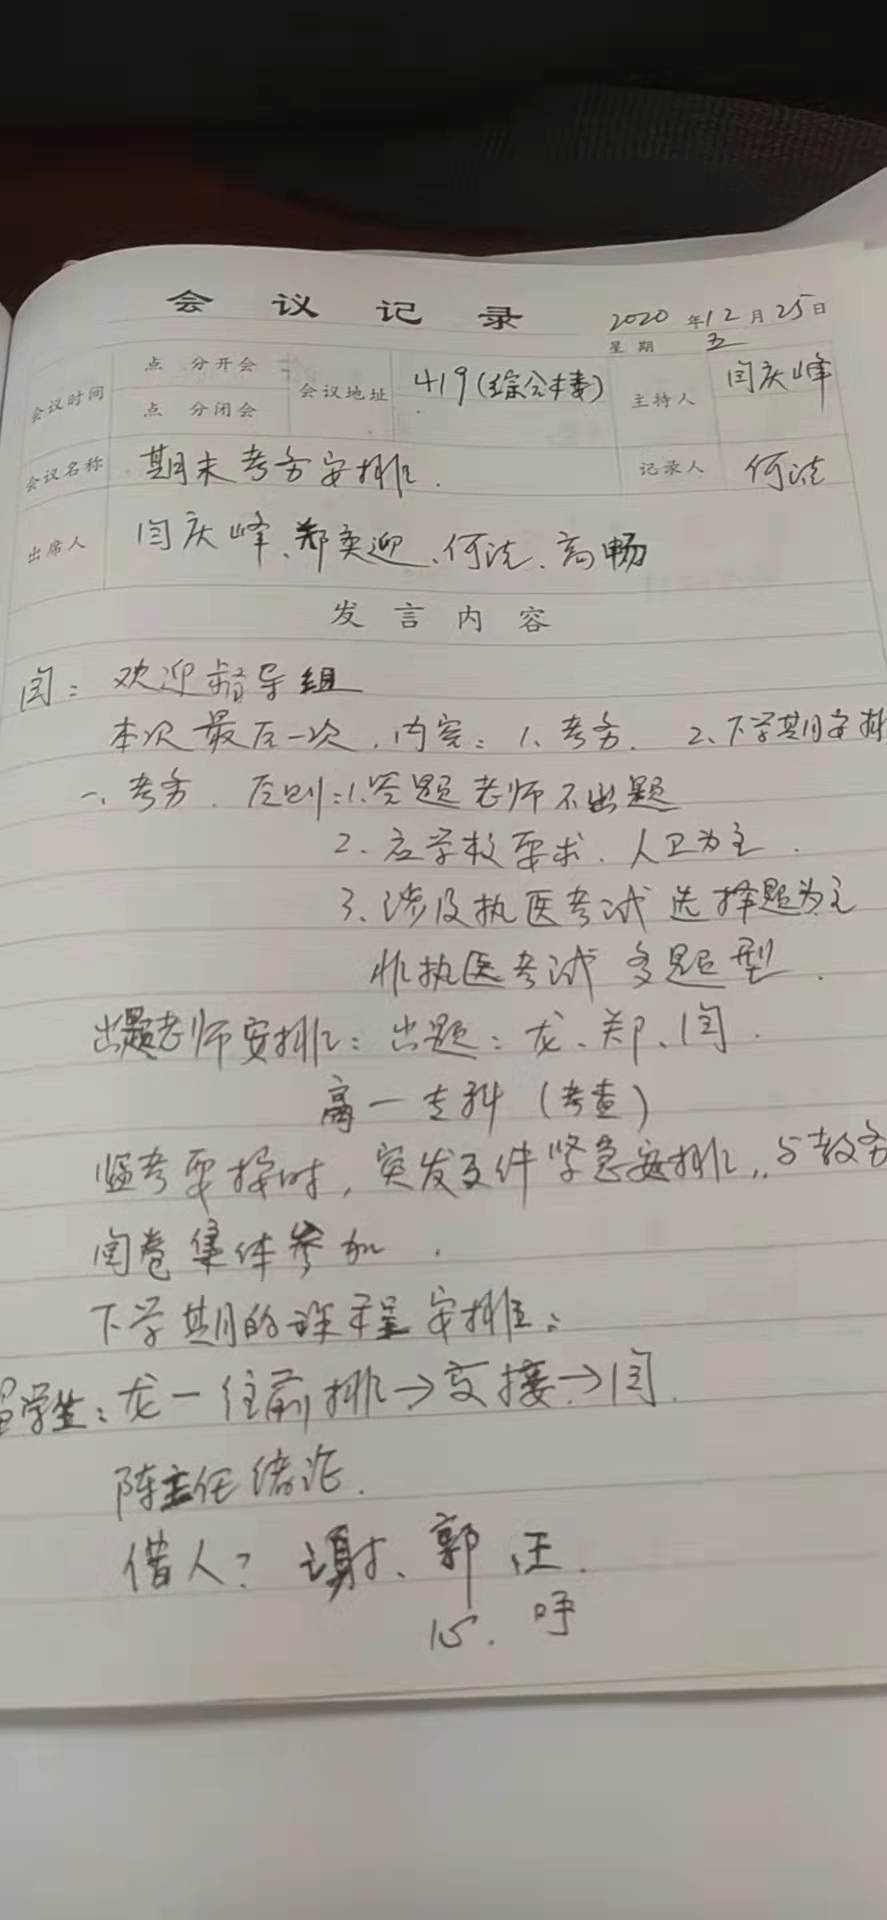 会议记录
2020年12月25日
星期 五
会议时间 点 分开会 点 分闭会 会议地址 419(综合楼) 主持人 闫庆峰
会议名称 期末考务安排. 记录人 何洁
出席人 闫庆峰、郑奕迎、何洁、高畅
发言内容
闫: 欢迎督导组
本次最后一次.内容:1、考务. 2、下学期安排
一、考务. 原则:1.答题老师不出题
2、应学校要求、人卫为主.
3、涉及执医考试选择题为主
非执医考试 多题型.
出题老师安排:出题:龙、郑、闫.
高一专科(考查)
监考要按时,突发事件紧急安排,与教务
阅卷集体参加.
下学期的课程安排:
留学生:龙一往前排→交接→闫.
陈主任绪论.
借人?谢、郭 汪.
心.呼